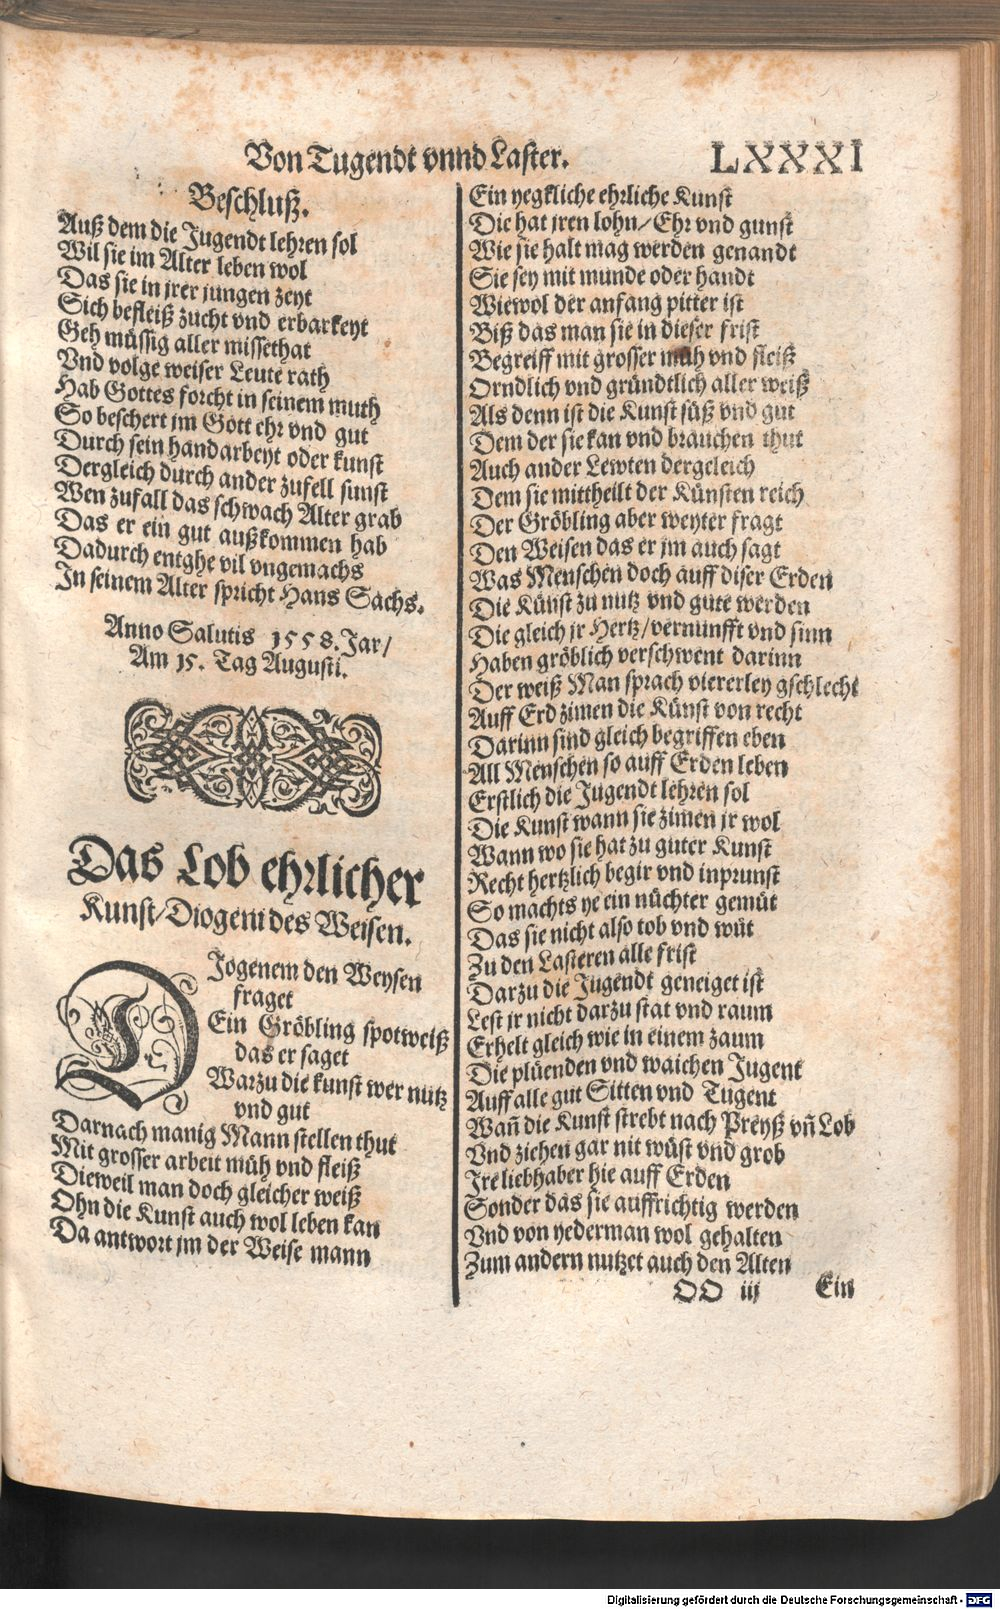 Von Tugendt vnnd Laster. LXXXI
Beschluß.
Auß dem die Jugendt lehren sol
Wil sie im Alter leben wol
Das sie in jrer jungen zeyt
Sich befleiß zucht vnd erbarkeyt
Geh müssig aller missethat
Vnd volge weiser Leute rath
Hab Gottes forcht in seinem muth
So beschert jm Gott ehr vnd gut
Durch sein handarbeyt oder kunst
Dergleich durch ander zufell sunst
Wen zufall das schwach Alter grab
Das er ein gut außkommen hab
Dadurch entghe vil vngemachs
In seinem Alter spricht Hans Sachs.
Anno Salutis 1558. Jar/
Am 15. Tag Augusti.
Das Lob ehrlicher
Kunst/Diogeni des Weisen.
DJogenem den Weysen
fraget
Ein Gröbling spotweiß
das er saget
Warzu die kunst wer nutz
vnd gut
Darnach manig Mann stellen thut
Mit grosser arbeit müh vnd fleiß
Dieweil man doch gleicher weiß
Ohn die Kunst auch wol leben kan
Da antwort jm der Weise mann
Ein yegkliche ehrliche Kunst
Die hat jren lohn/Ehr vnd gunst
Wie sie halt mag werden genandt
Sie sey mit munde oder handt
Wiewol der anfang pitter ist
Biß das man sie in dieser frist
Begreiff mit grosser müh vnd fleiß
Orndlich vnd gründtlich aller weiß
Als denn ist die Kunst süß vnd gut
Dem der sie kan vnd brauchen thut
Auch ander Lewten dergeleich
Dem sie mittheilt der Künsten reich
Der Gröbling aber weyter fragt
Den Weisen das er jm auch sagt
Was Menschen doch auff diser Erden
Die Künst zu nutz vnd gute werden
Die gleich jr Hertz/vernunfft vnd sinn
Haben gröblich verschwent darinn
Der weiß Man sprach viererley gschlecht
Auff Erd zimen die Künst von recht
Darinn sind gleich begriffen eben
All Menschen so auff Erden leben
Erstlich die Jugendt lehren sol
Die Kunst wann sie zimen jr wol
Wann wo sie hat zu guter Kunst
Recht hertzlich begir vnd inprunst
So machts ye ein nüchter gemüt
Das sie nicht also tob vnd wüt
Zu den Lasteren alle frist
Darzu die Jugendt geneiget ist
Lest jr nicht darzu stat vnd raum
Erhelt gleich wie in einem zaum
Die plüenden vnd waichen Jugent
Auff alle gut Sitten vnd Tugent
Wañ die Kunst strebt nach Preyß vñ Lob
Vnd ziehen gar nit wüst vnd grob
Ire liebhaber hie auff Erden
Sonder das sie auffrichtig werden
Vnd von yederman wol gehalten
Zum andern nutzet auch den Alten
OO iij Ein
Digitalisierung gefördert durch die Deutsche Forschungsgemeinschaft - DFG